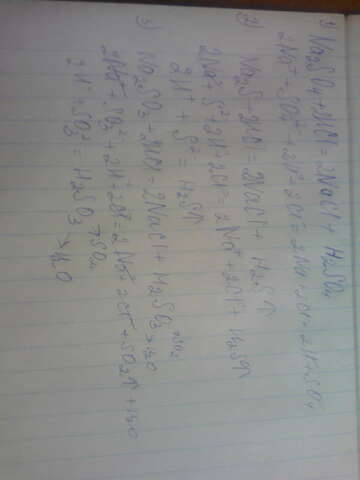 1) Na2SO4+2HCl = 2NaCl + H2SO4
2Na⁺ + SO4²⁻ + 2H⁺ 2Cl⁻ = 2Na Cl⁻ = 2H+SO4
2) Na2S+2HCl = 2NaCl + H2S↑
2Na⁺+S²⁻+2H⁺+2Cl⁻ = 2Na⁺+2Cl⁻+H2S↑
2H⁺ + S²⁻ = H2S↑
3) Na2SO3 + 2HCl = 2NaCl + H2SO3 H2O
2Na⁺ + SO3²⁻ + 2H⁺ + 2Cl⁻ = 2Na⁺ + 2Cl⁻ + SO2↑ + H2O
2H⁺ + SO3²⁻ = H2SO3 H2O